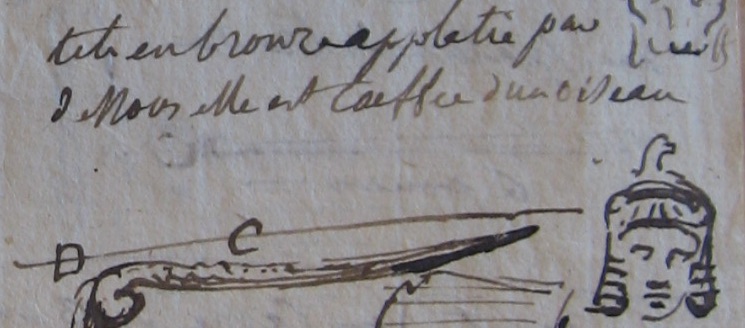 tete en bronze applatie par
d[...] elle est Coeffee d'un oiseau
C
D